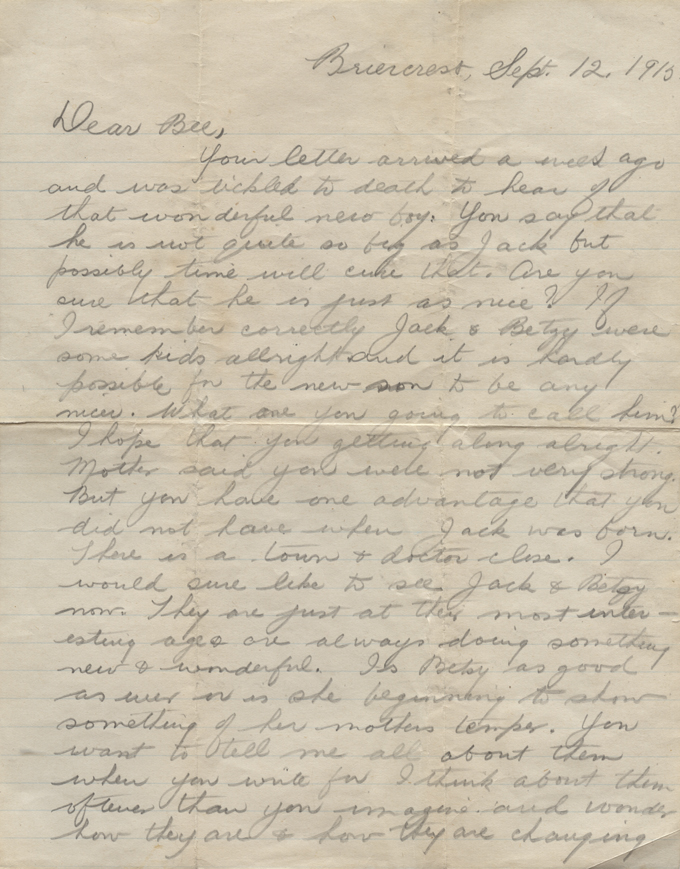 Briercrest, Sept. 12. 1915
Dear Bee,
Your letter arrived a week ago
and was tickled to death to hear of
that wonderful new boy. You say that
he is not quite so big as Jack but
possibly time will cure that. Are you
sure that he is just as nice? If
I remember correctly Jack & Betsy were
some kids allright and it is hardly
possible for the new son to be any
nicer. What are you going to call him?
I hope that you getting along alright.
Mother said you were not very strong.
But you have one advantage that you
did not have when Jack was born.
There is a town & doctor close. I
would sure like to see Jack & Betsy
now. They are just at their most inter-
esting age & are always doing something
new & wonderful. Is Betsy as good
as ever or is she beginning to show
something of her mothers temper. You
want to tell me all about them
when you write for I think about them
oftener than you imagine and wonder
how they are & how they are changing